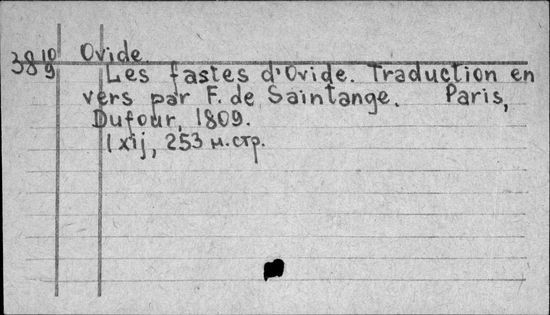 38 10/9 Ovide.
Les fastes d'Ovide. Traduction en
vers par F. de Saintange. Paris,
Dufour, 1809.
lxij, 253 м.стр.